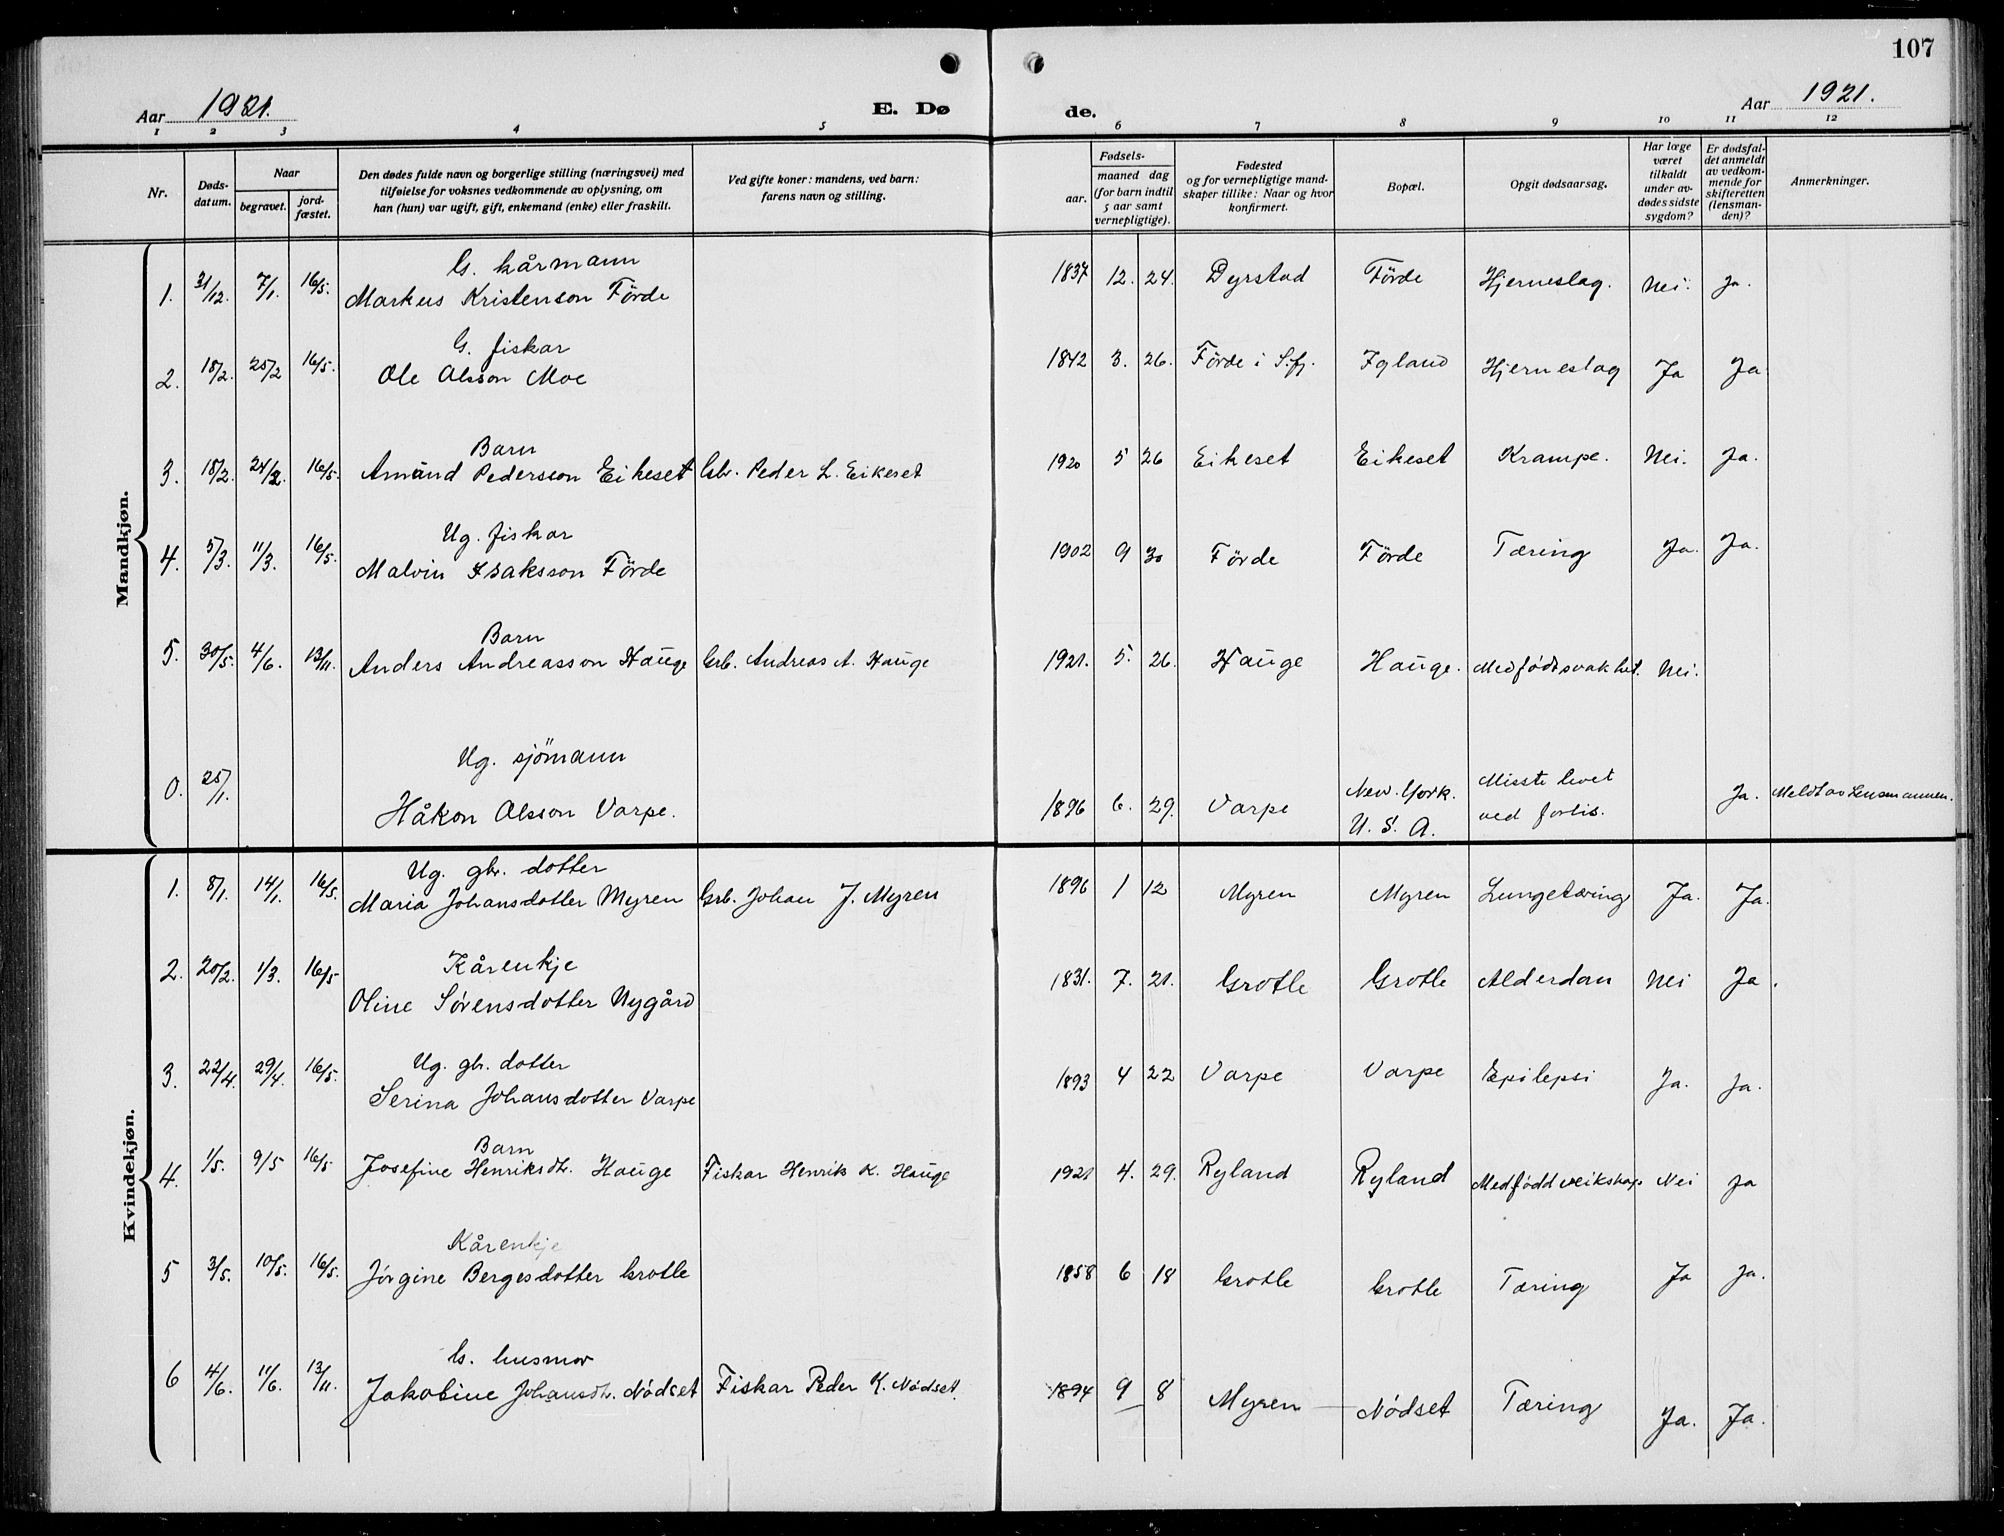 107
Aar 1921. E. Dø
de. Aar 1921.
1 2 3 4 5 6 7 8 9 10 11 12
Nr.
Døds-
datum.
Naar
begravet.
jord-
fæstet.
Den dødes fulde navn og borgerlige stilling (næringsvei) med
tilføielse for voksnes vedkommende av oplysning, om
han (hun) var ugift, gift, enkemand (enke) eller fraskilt.
Ved gifte koner: mandens, ved barn:
farens navn og stilling.
Fødsels-
aar.
maaned dag
(for barn indtil
5 aar samt
vernepligtige).
Fødested
og for vernepligtige mand-
skaper tillike: Naar og hvor
konfirmert.
Bopæl.
Opgit dødsaarsag.
Har læge
været
tilkaldt
under av-
dødes sidste
sygdom?
Er dødsfal-
det anmeldt
av vedkom-
mende for
skifteretten
(lensman-
den)?
Anmerkninger.
Mandkjøn.
G. kårmann
1. 31/12. 7/1. 16/5. Markus Kristenson Förde 1837 12. 24. Dyrstad Förde Hjerneslag. Nei. Ja.
G. fiskar
2. 18/2. 25/2 16/5. Ole Olsson Moe 1842 3. 26. Förde i S.fj. Igland Hjerneslag Ja Ja.
Barn
3. 18/2. 24/2. 16/5. Amund Pedersson Eikeset Gbr. Peder L. Eikeset 1920 5 26 Eikeset Eikeset Krampe. Nei. Ja.
Ug. fiskar
4. 5/3. 11/3. 16/5. Malvin Isaksson Förde 1902 9 30 Förde Förde Tæring Ja. Ja.
Barn
5. 30/5. 4/6. 13/11. Anders Andreasson Hauge Grb. Andreas A. Hauge 1921. 5. 26. Hauge Hauge. Medfödt svakhet. Nei.
Ug. sjömann
0. 25/1. Håkon Olsson Varpe. 1896 6. 29. Varpe New. York. U. S. A. Misste livet ved forlis. Ja. Meldt av Lensmannen.
Kvindekjøn.
Ug. gbr. dotter
1. 8/1. 14/1. 16/5. Maria Johansdotter Myren Grb. Johan J. Myren 1896 1 12 Myren Myren Lungetæring Ja. Ja.
Kårenkje
2. 20/2. 1/3. 16/5 Oline Sørensdotter Nygård 1831. 7. 21. Grotle Grotle Alderdan Nei Ja.
Ug. gbr. dotter
3. 22/4. 29/4. 16/5. Serina Johansdotter Varpe 1893 4 22 Varpe Varpe Epilepsi Ja. Ja.
Barn
4. 1/5. 9/5 16/5. Josefine Henriksdtr. Hauge Fiskar Henrik K. Hauge 1921 4. 29. Rylund Ryland Medfødd veikskap Nei Ja
Kårenkje
5 3/5. 10/5. 16/5. Jørgine Bergesdotter Grotle 1858 6 18 Grotle Grotle Tæring Ja Ja.
G. husmor
6 4/6. 11/6. 13/11. Jakobine Johansdtr. Nødset Fiskar Peder K. Nødset. 1894 9 8 Myren Nødset Tæring Ja. Ja.